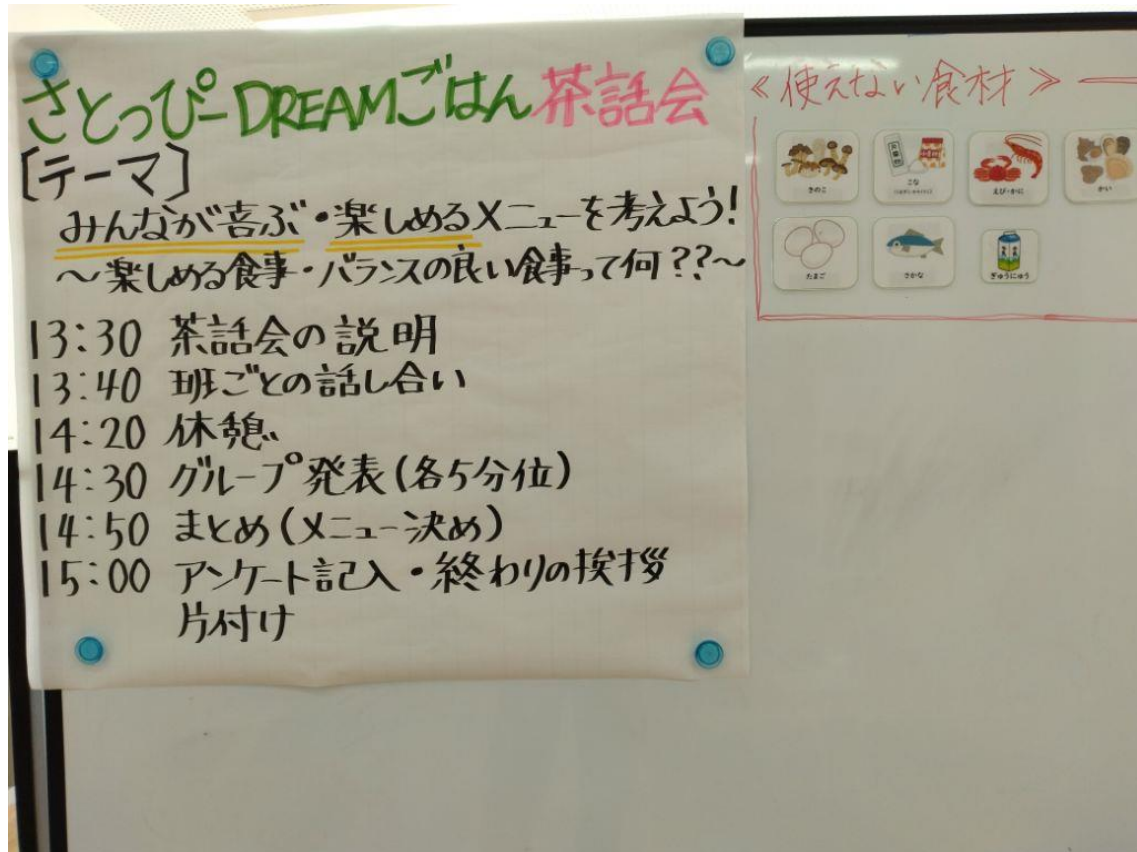 さとっぴーDREAMごはん茶話会
[テーマ]
みんなが喜ぶ・楽しめるメニューを考えよう!
〜楽しめる食事・バランスの良い食事って何??〜
13:30 茶話会の説明
13:40 班ごとの話し合い
14:20 休憩
14:30 グループ発表(各5分位)
14:50 まとめ(メニュー決め)
15:00 アンケート記入・終わりの挨拶
片付け
≪使えない食材≫
きのこ
こな
えび・かに
かい
たまご
さかな
ぎゅうにゅう